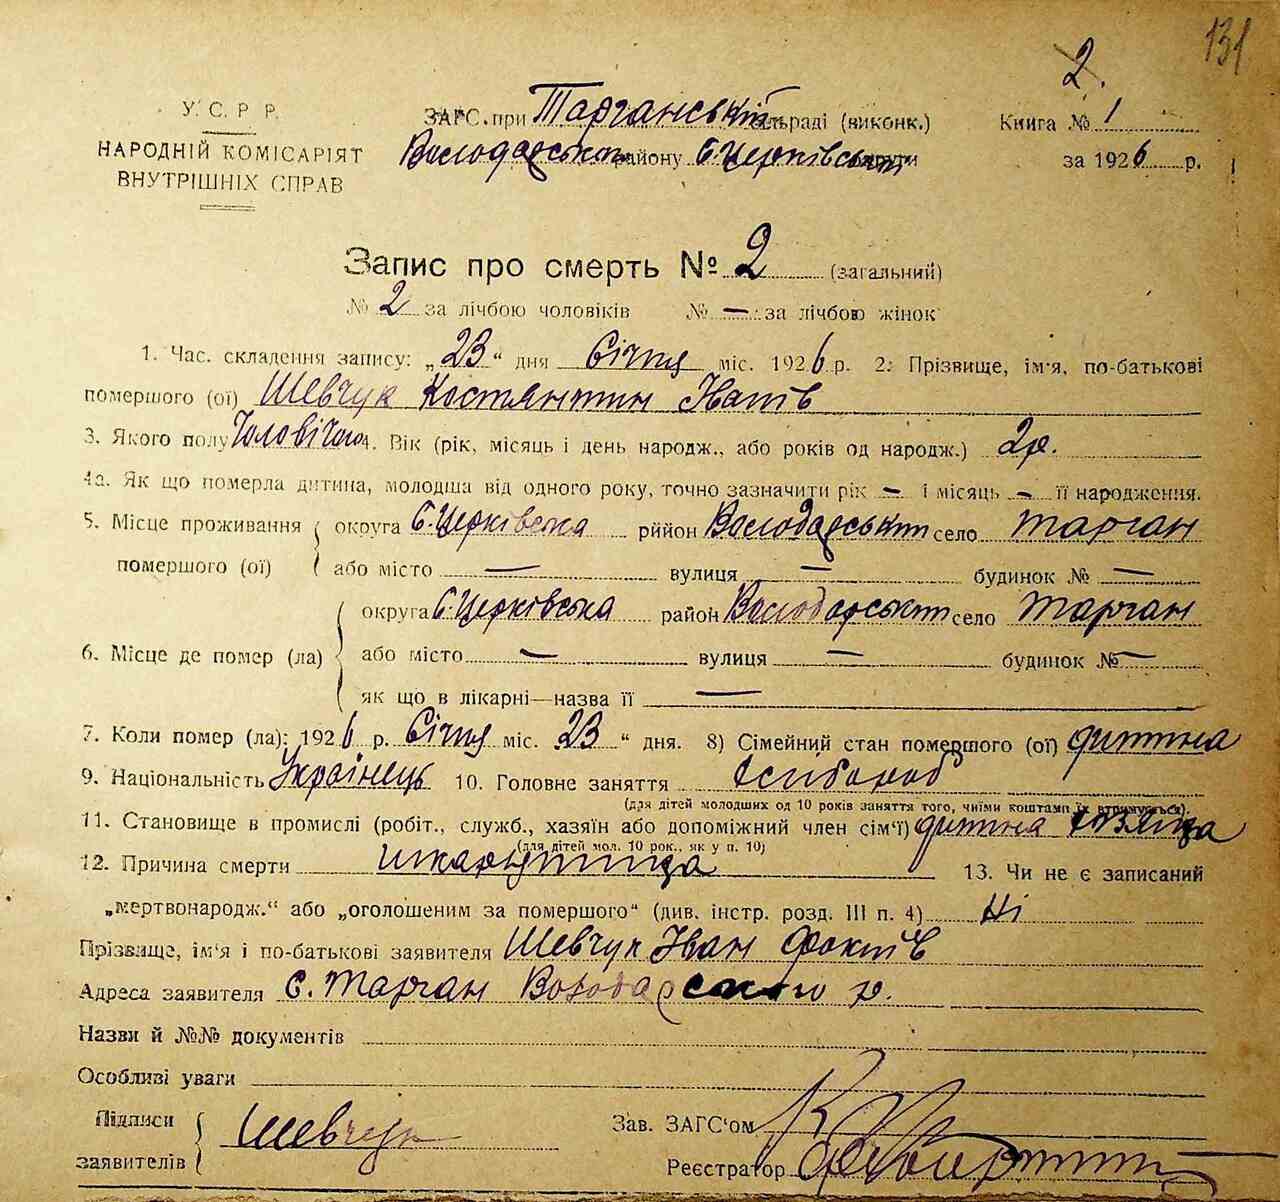 131
2.
У. С. Р. Р.
НАРОДНІЙ КОМІСАРІЯТ
ВНУТРІШНІХ СПРАВ
ЗАГС. при Тарганській сільраді (виконк.)
Володарськ. району Б-Церківськ. округи
Книга № 1
за 1926 р.
Запис про смерть № 2 (загальний)
№ 2 за лічбою чоловіків № — за лічбою жінок
1. Час. складення запису: „23“ дня Січня міс. 1926 р. 2. Прізвище, ім'я, по-батькові
помершого (ої) Шевчук Костянтин Іванів
3. Якого полу Чоловічого 4. Вік (рік, місяць і день народж., або років од народж.) 2 р.
4а. Як що померла дитина, молодша від одного року, точно зазначити рік — і місяць — її народження.
5. Місце проживання помершого (ої) округа Б-Церківська рийон Володарськ. село Тарган
або місто — вулиця — будинок № —
6. Місце де помер (ла) округа Б-Церківська район Володарськ. село Тарган
або місто — вулиця — будинок № —
як що в лікарні—назва її —
7. Коли помер (ла): 1926 р. Січня міс. 23 “ дня. 8) Сімейний стан помершого (ої) дитина
9. Національність Українець 10. Головне заняття хлібороб
(для дітей молодших од 10 років заняття того, чиїми коштами їх втримується).
11. Становище в промислі (робіт., служб., хазяїн або допоміжний член сім'ї) дитина хазяїна
(для дітей мол. 10 рок., як у п. 10)
12. Причина смерти шкарлятина 13. Чи не є записаний
„мертвонародж.“ або „оголошеним за помершого“ (див. інстр. розд. III п. 4) Ні
Прізвище, ім'я і по-батькові заявителя Шевчук Іван Фоктів
Адреса заявителя с. Тарган Володарського р.
Назви й №№ документів
Особливі уваги
Підписи заявителів Шевчук
Зав. ЗАГС'ом
Реєстратор